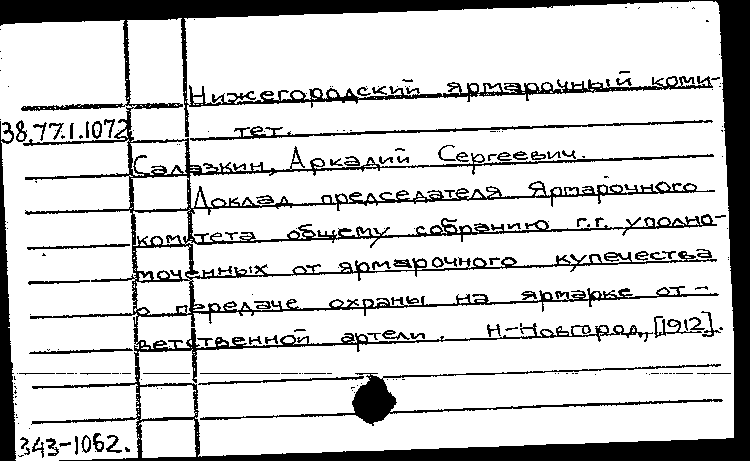 Нижегородский ярмарочный коми-
38.77.1.1072 тет.
Салазкин, Аркадий Сергеевич.
Доклад председателя Ярмарочного
комитета общему собранию г.г. уполно-
моченных от ярмарочного купечества
о передаче охраны на ярмарке от-
ветственной артели. Н.-Новгород, [1912].
343-1062.